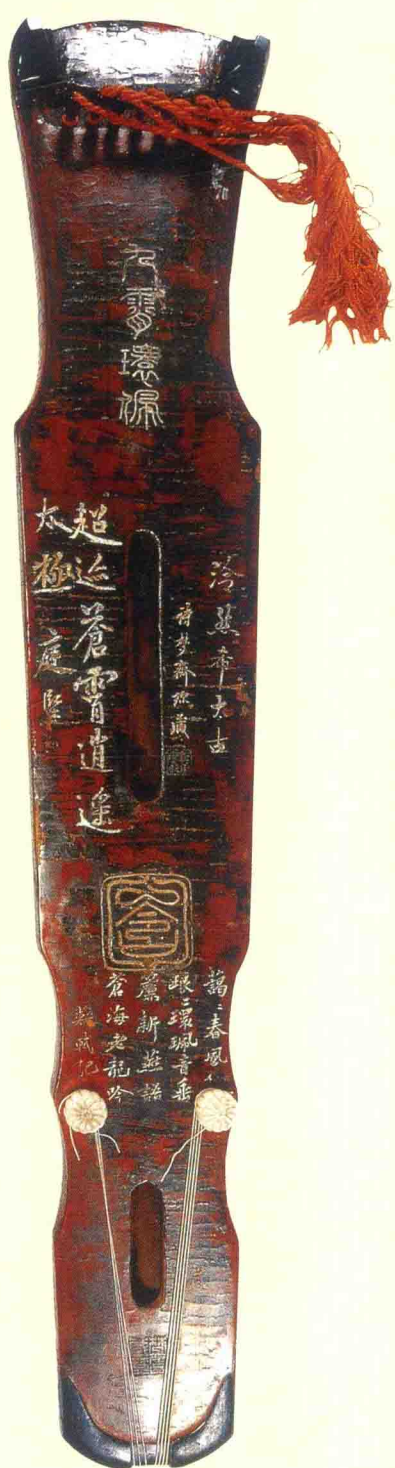 九霄環佩
泠然希太古
詩夢齋珍藏
超迹蒼霄逍遥
太極 庭堅
包含
藹〻春風
琅〻環珮音垂
簾新燕語
蒼海老龍吟
蘇軾記